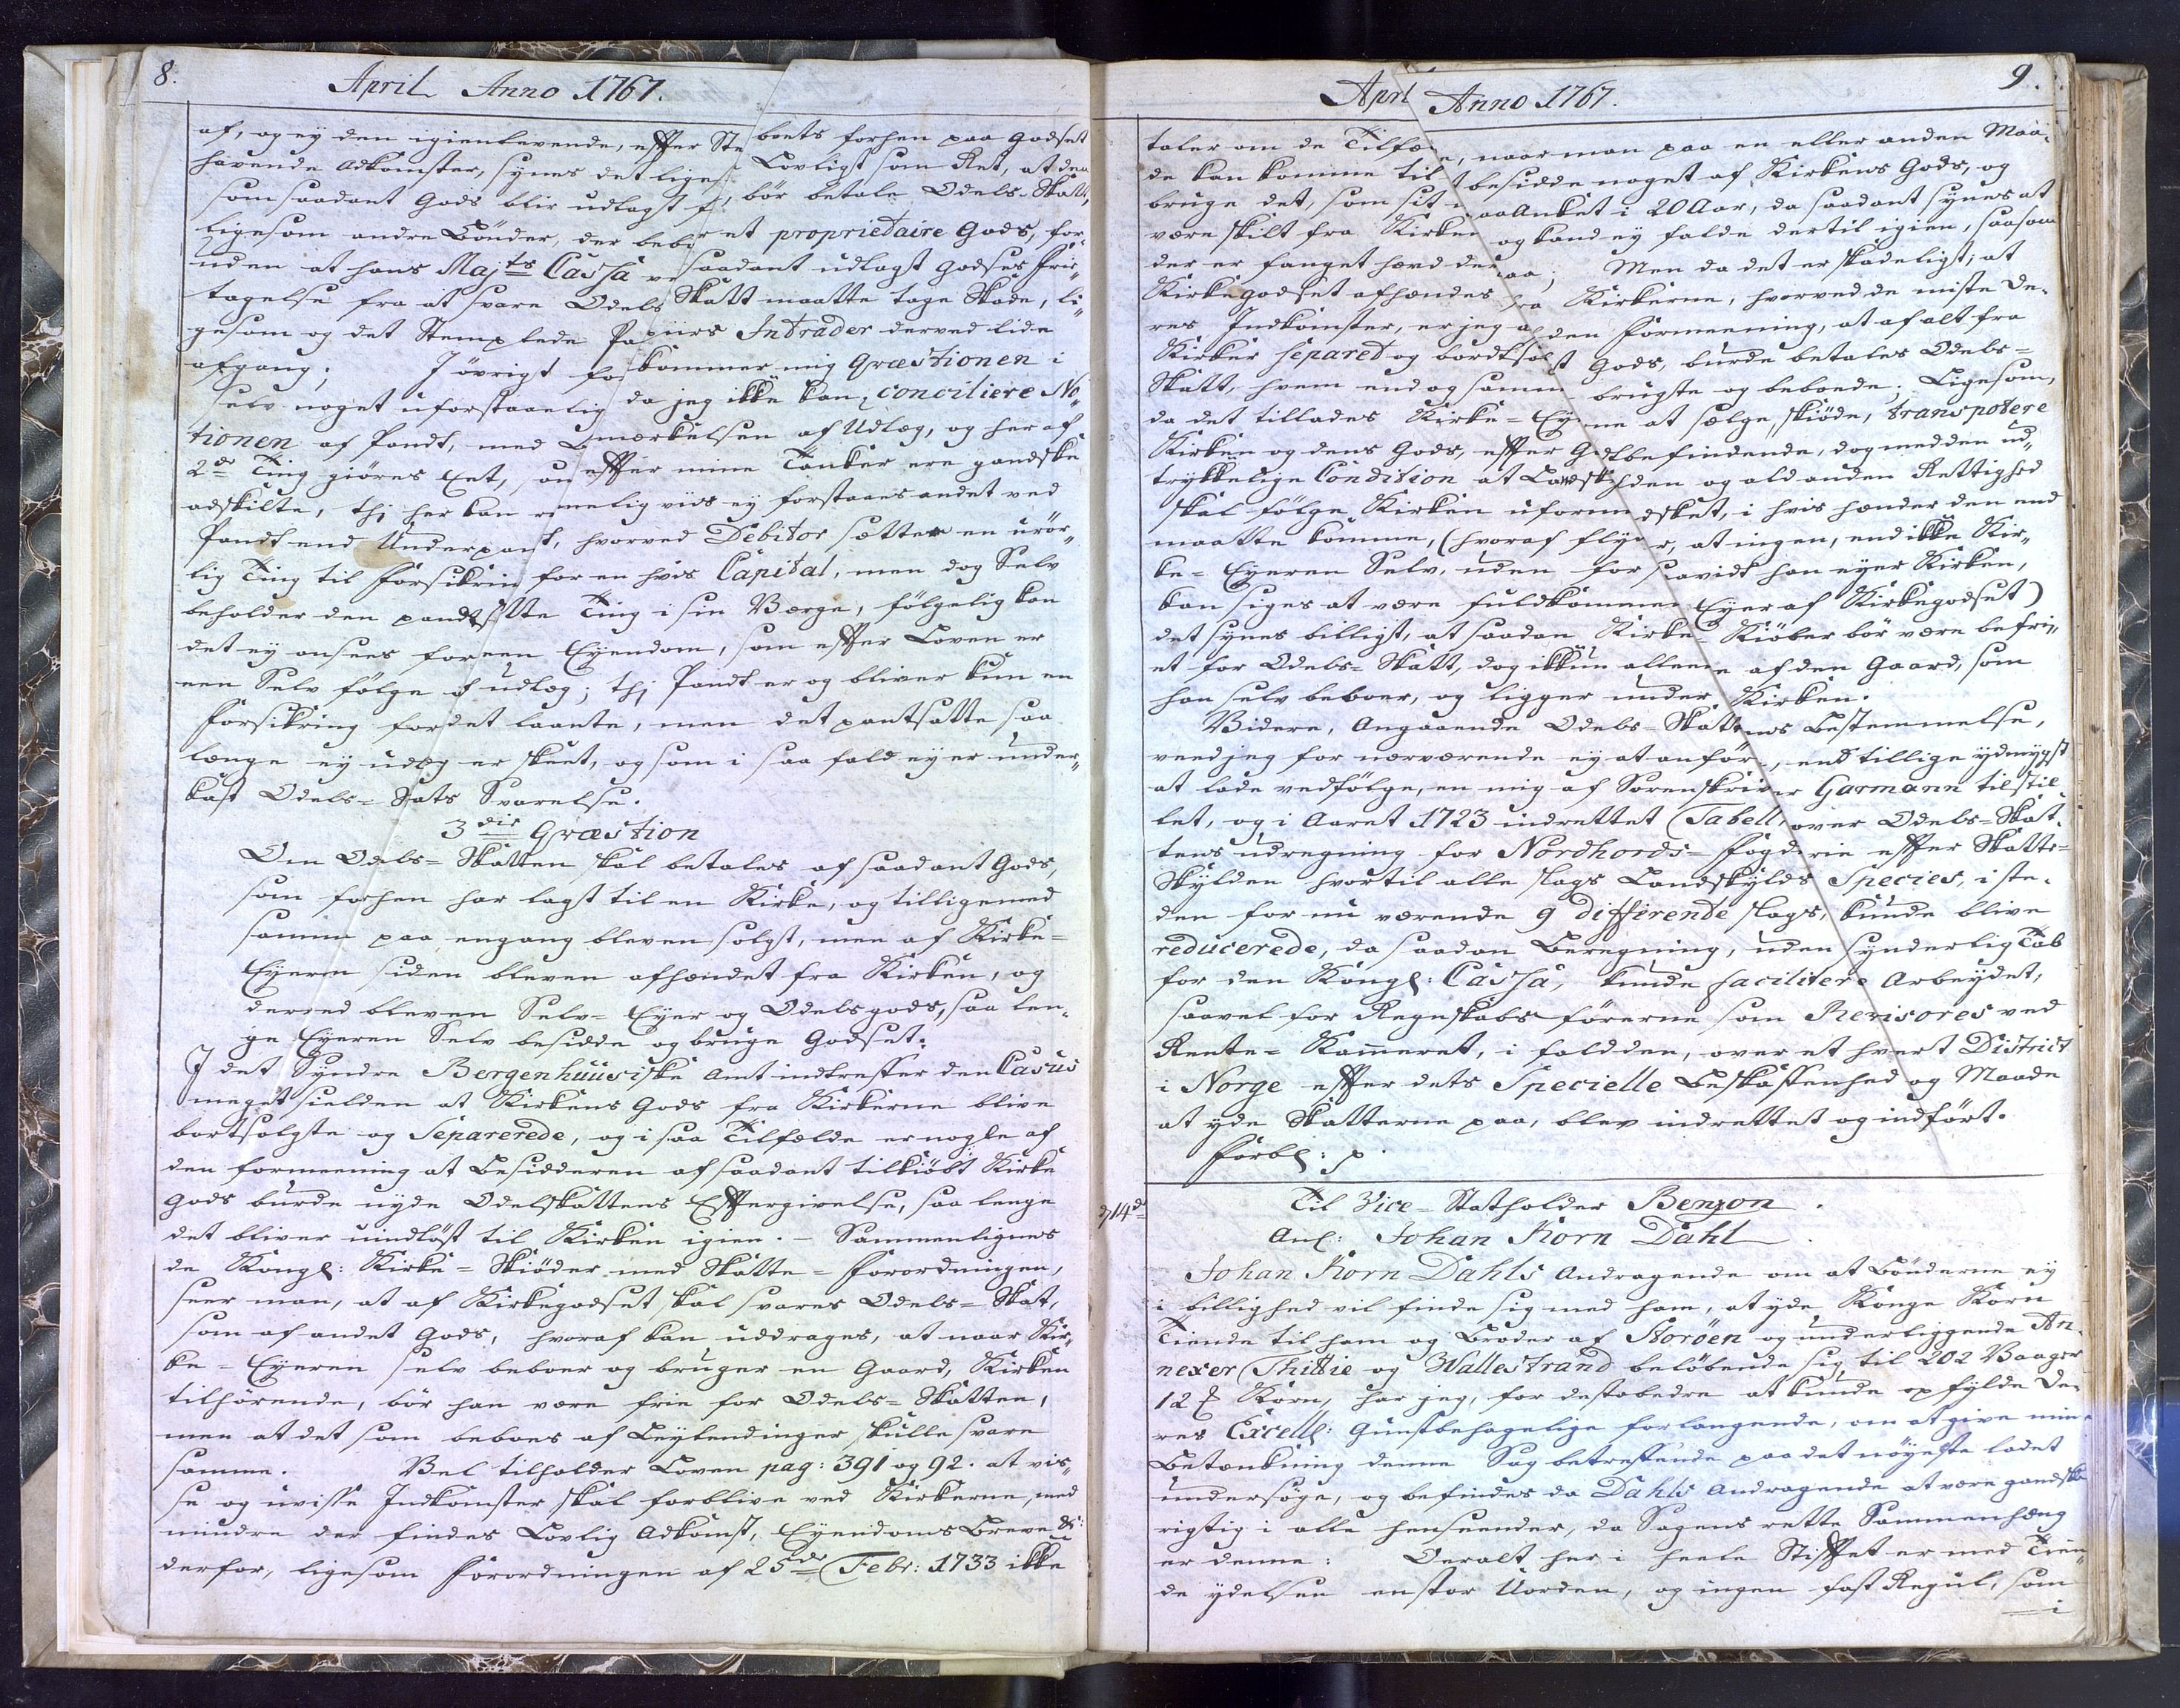 8.
April Anno 1767.
af, og ey den igienlevende, efter Ste boets forhen paa Godset
havende Adkomster, synes det lige Lovligt som Ret, at den
som saadant Gods blir udlagt f bør betale Odels-Skatt,
ligesom andre Bønder, der bebo et proprietaire Gods, for„
uden at hans Majts Cassa ve saadant udlagt Godses frie„
tagelse fra at svare Odels Skatt maatte tage Skade, li„
gesom og det Stemplede Papiirs Intrader derved lide
afgang; I övrigt fo kommer mig Qvæstionen i
selv noget uforstaaelig da jeg ikke kan conciliere No„
tionen af Pandt, med Bemærkelsen af Udlæg, og her af
2de Ting giöres Eet, som efter mine Tanker ere gandske
adskilte, thi her kan rimelig viis ey forstaaes andet ved
Pandt end Underpant, hvorved Debitor sætter en urør„
lig Ting til Forsikring for en hvis Capital, men dog Selv
beholder den pandtsatte Ting i sin Værge, følgelig kan
det ey ansees for een Eyendom, som efter Loven er
een Selv følge af udlæg; thi Pandt er og bliver kun en
Forsikring for det laante, men det pantsatte saa
længe ey udlæg er skeet, og som i saa fald ey er under„
kast Odels=Skats Svarelse.
3die Qvæstion
Om Odels=Skatten skal betales af saadant Gods,
som forhen har lagt til en Kirke, og tilligemed
samme paa engang bleven solgt, men af Kirke=
Eyeren siden bleven afhændet fra Kirken, og
derved bleven Selv=Eyer og Odelsgods, saa len„
ge Eyeren Selv besidde og bruge Godset.
I det Syndre Bergenhuusiske Amt indtreffer den Casus
meget sielden at Kirkens Gods fra Kirkerne blive
bortsolgte og Separerede, og i saa Tilfælde er nogle af
den formeening at Besidderen af saadant tilkiöbt Kirke
Gods burde nyde Odelskattens Eftergivelse, saa lenge
det bliver uindlöst til Kirken igien. – Sammenlignes
de Kongl: Kirke=Skiöder med Skatte=Forordningen,
seer man, at af Kirkegodset skal svares Odels=Skat,
som af andet Gods, hvoraf kan uddrages, at naar Kir„
ke=Eyeren selv beboer og bruger en Gaard, Kirken
tilhörende, bör han være frie for Odels=Skatten,
men at det som beboes af Leylendinger skulle svare
samme. Vel tilholder Loven pag: 391 og 92. at vis„
se og uvisse Indkomster skal forblive ved Kirkerne, med
mindre der findes Lovlig Adkomst, Eyendoms Breve &c:
derfor, ligesom Forordningen af 25de Febr: 1733 ikke
9.
Aprl Anno 1767.
taler om de Tilfæ e, naar man paa en eller anden Maa„
de kan komme til besidde noget af Kirkens Gods, og
bruge det, som sit uaanket i 20 Aar, da saadant synes at
være skilt fra Kirken og kand ey falde dertil igien, saasom
der er fanget hævd derpaa; Men da det er skadeligt, at
Kirkegodset afhændes fra Kirkerne, hvorved de miste De„
res Indkomster, er jeg af den Formeening, at af alt fra
Kirker separet og bortsolgt Gods, burde betales Odels=
Skatt, hvem end og samme brugte og beboede. Ligesom,
da det tillades Kirke=Eyerne at sælge, skiöde, transpotere
Kirken og dens Gods, efter Godtbefindende, dog med den ud„
trykkelige Condition at Landskylden og ald anden Rettighed
skal fölge Kirken uformindsket, i hvis hænder den end
maatte komme, (hvoraf flyder, at ingen, end ikke Kir„
ke=Eyeren Selv, uden for saavidt han eyer Kirken,
kan siges at være fuldkommen Eyer af Kirkegodset)
det synes billigt, at saadan Kirke=Kiöber bör være befri„
et for Odels=Skatt, dog ikkun alleene af den Gaard, som
han selv beboer, og ligger under Kirken.
Videre, Angaaende Odels=Skattens Bestemmelse,
veed jeg for nærværende ey at anföre, end tillige ydmygst
at lade vedfölge, en mig af Sorenskriver Garmann tilstil„
let, og i Aaret 1723 indrettet Tabell, over Odels=Skat„
tens udregning for Nordhords=Fogderie efter Skatte=
Skylden hvortil alle slags Landskylds Species, i ste„
den for nu værende 9 diffirente slags, kunde blive
reducerede, da saadan Beregning, uden synderlig Tab
for den Kongl: Cassa, kunde facilitere Arbeydet,
saavel for Regnskabsförerne som Revisores ved
Rente=Kammeret, i fald den, over et hvert District
i Norge efter dets Specielle Beskaffenhed og Maade
at yde Skatterne paa, blev indrettet og indfört.
Forbl: p.
d 14de
Til Vice=Statholder Benzon.
Anl: Johan Korn Dahl.
Johan Korn Dahls Andragende om at Bönderne ey
i billighed vil finde sig med ham, at yde Konge Korn
Tiende til ham og Broder af Storöen og underliggende An„
nexer Thittie og Wallestrand beløbende sig til 202 Vaager
12 Korn, har jeg, for desto bedre at kunde opfylde De„
res Excell: Gunstbehagelige forlangende, om at give min
Betænkning denne Sag betreffende paa det nöyeste ladet
undersöge, og befindes da Dahls Andragende at være gandske
rigtig i alle henseender, da Sagens rette Sammenhæng
er denne: Overalt her i heele Stiftet er med Tien„
de ydelsen en stor Uorden, og ingen fast Regul, som
i